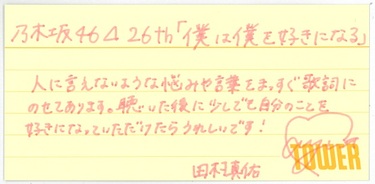 乃木坂46 26th「僕は僕を好きになる」
人に言えないような悩みや言葉をまっすぐ歌詞に
のせてあります。聴いた後に少しでも自分のことを
好きになっていただけたらうれしいです!
田村真佑
TOWER